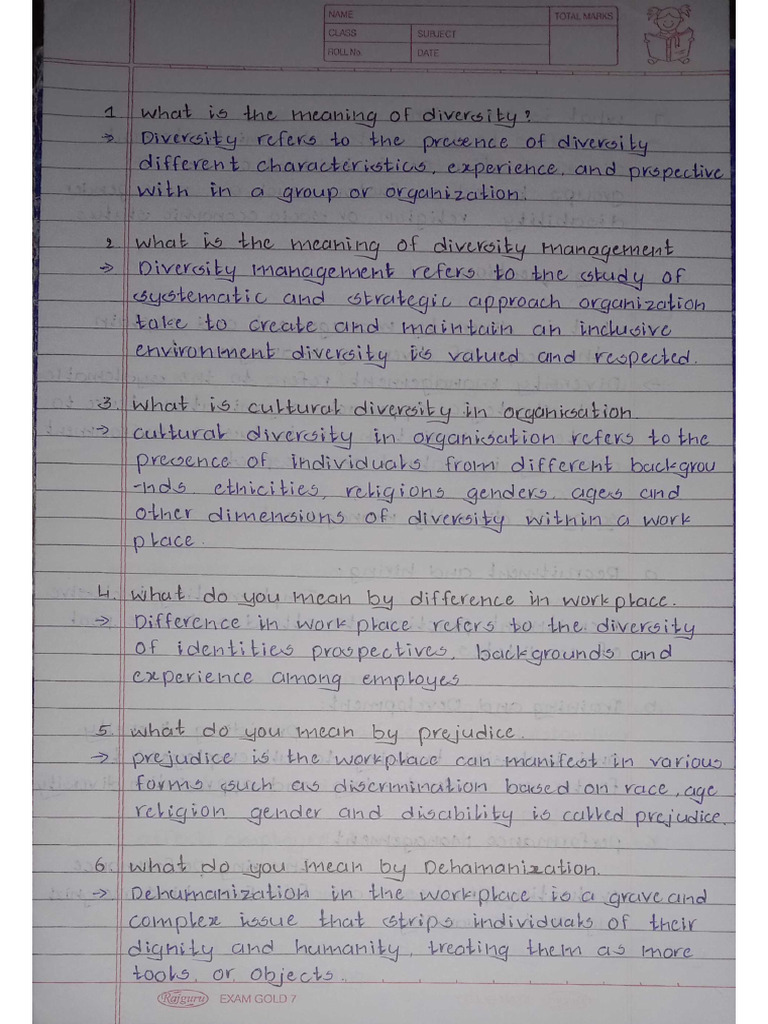 NAME
TOTAL MARKS
CLASS
SUBJECT
ROLL No.
DATE
1 What is the meaning of diversity?
→ Diversity refers to the presence of diversity
different characteristics, experience, and prospective
with in a group or organization.
2. What is the meaning of diversity management
→ Diversity management refers to the study of
systematic and strategic approach organization
take to create and maintain an inclusive
environment diversity is valued and respected.
3. What is cultural diversity in organisation
→ cultural diversity in organisation refers to the
presence of individuals from different backgrou
-nds. ethicities, religions genders. ages and
other dimensions of diversity within a work
place.
4. What do you mean by difference in workplace.
→ Difference in workplace refers to the diversity
of identities prospectives, backgrounds and
experience among employes
5. What do you mean by prejudice.
→ prejudice is the workplace can manifest in various
forms such as discrimination based on race, age
religion gender and disability is called prejudice.
6. What do you mean by Dehamanization.
→ Dehumanization in the workplace is a grave and
complex issue that strips individuals of their
dignity and humanity, treating them as more
tools. or objects.
Rajguru EXAM GOLD 7